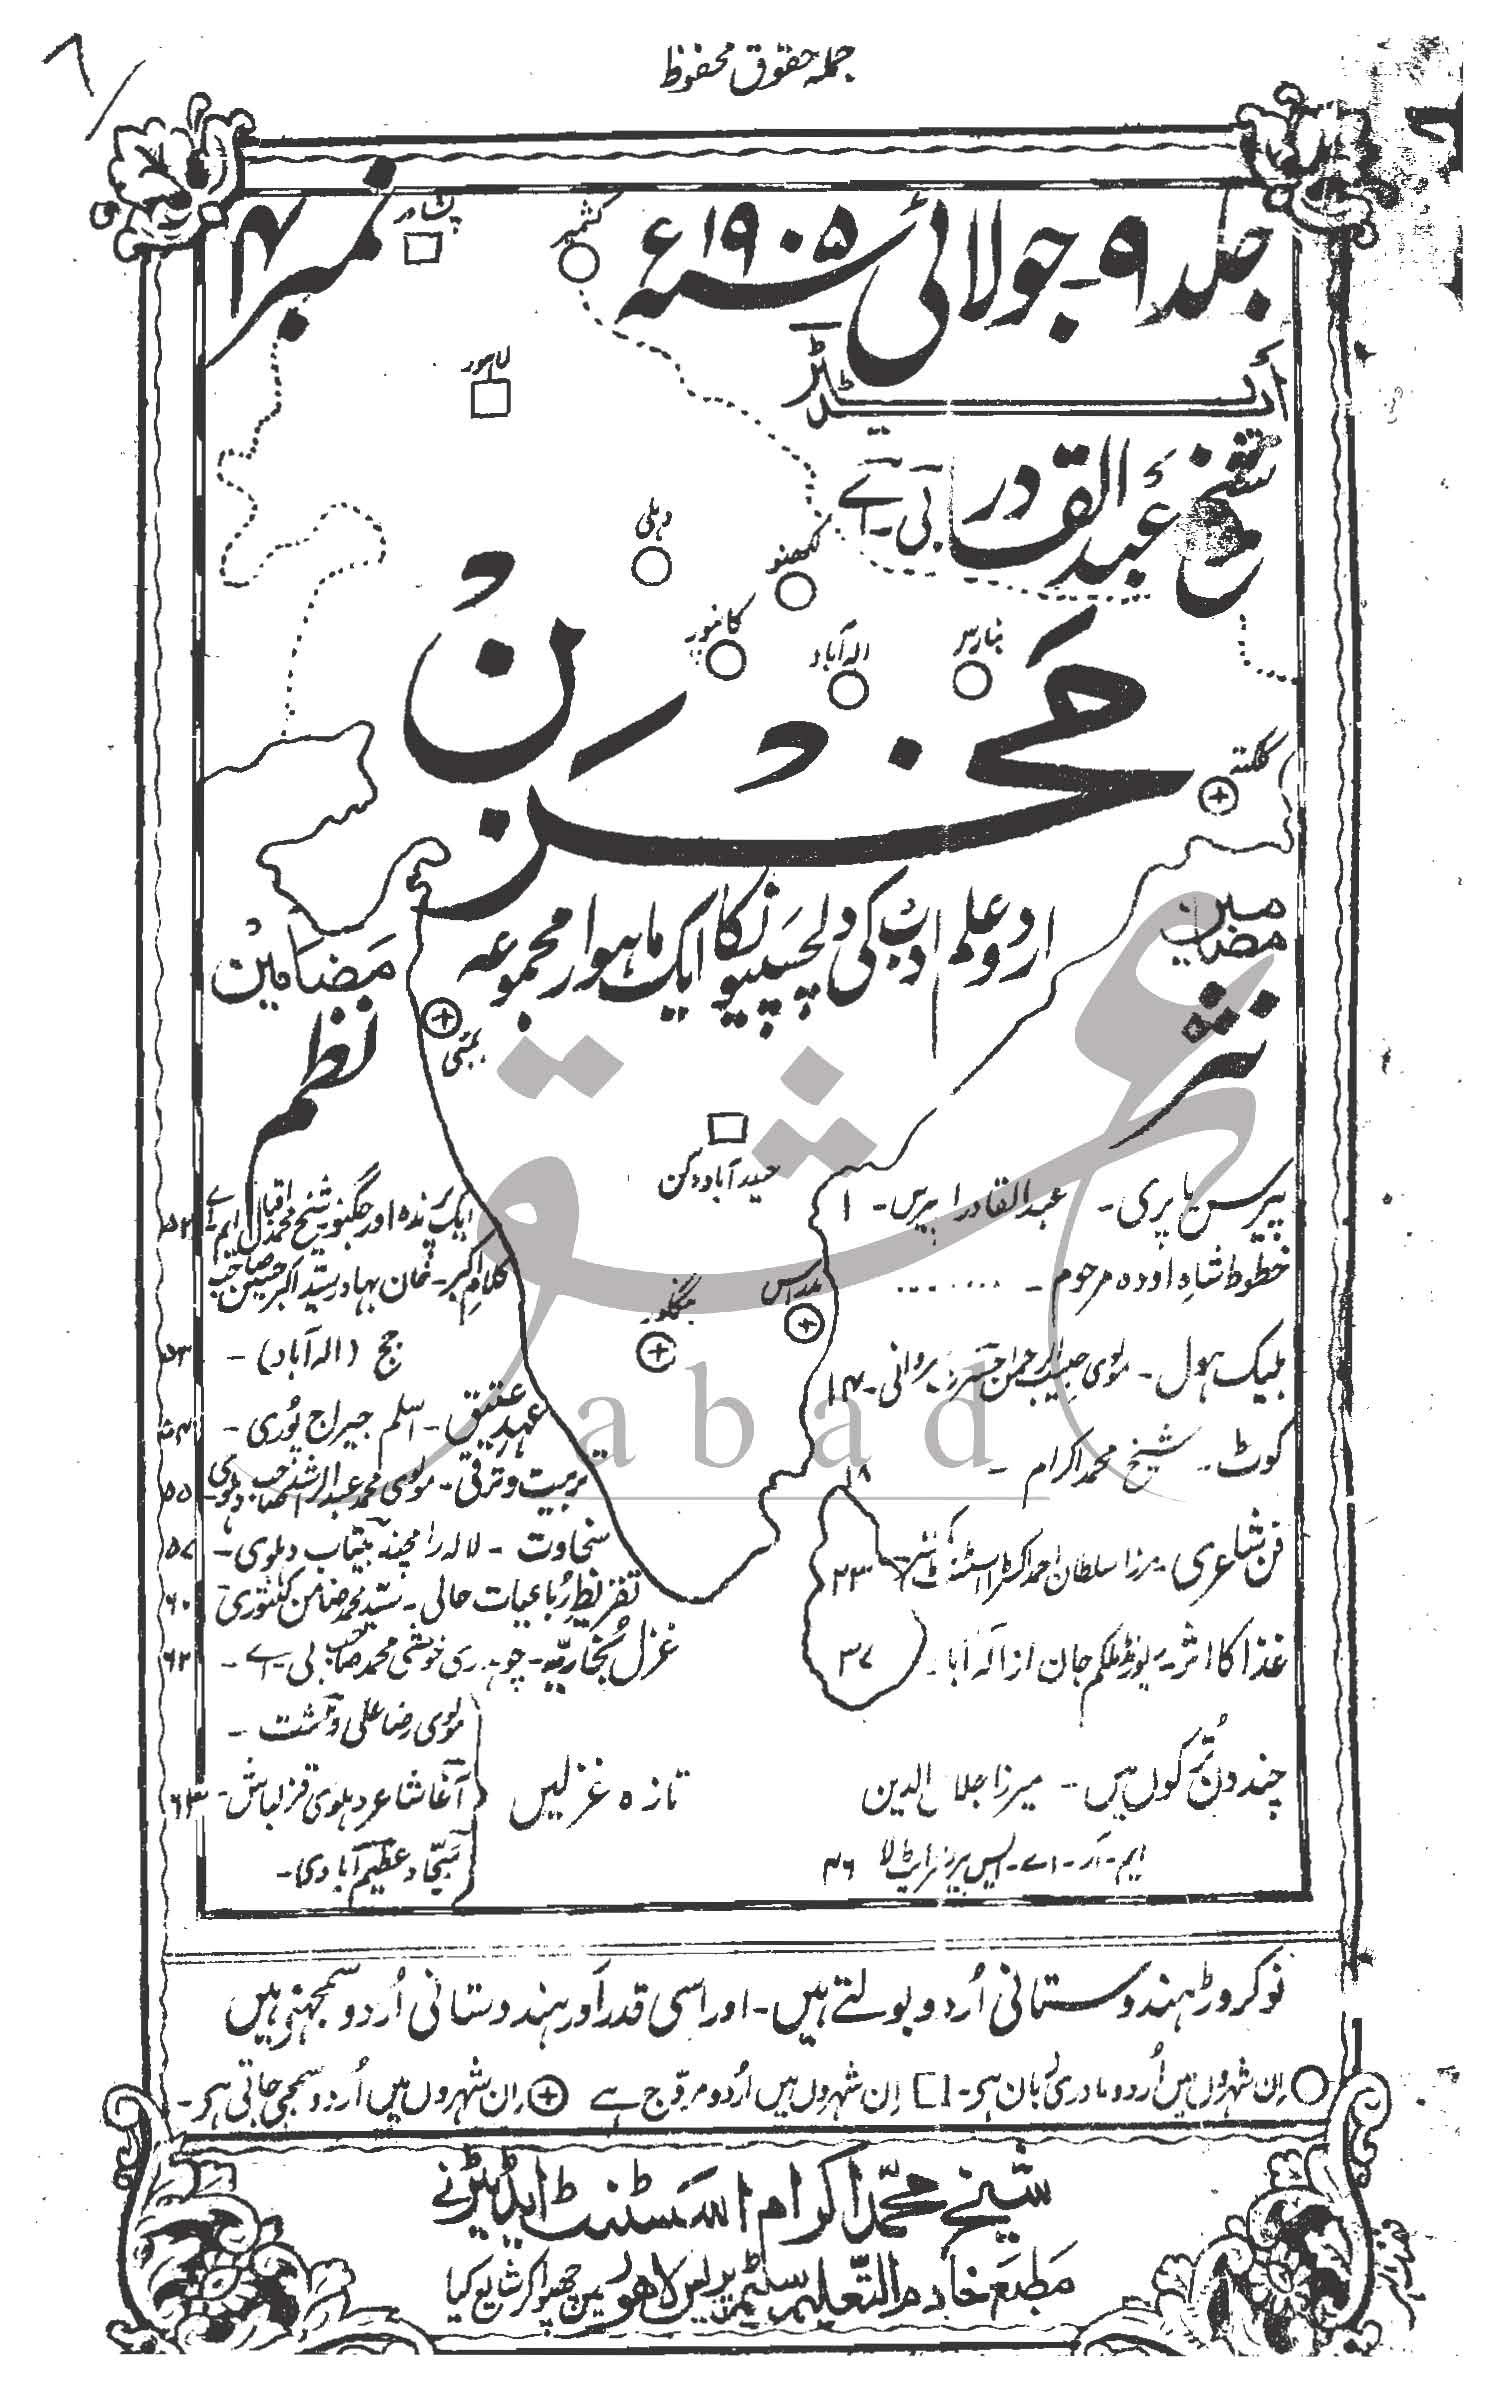 جملہ حقوق محفوظ
جلد ۹ - جولائی ۱۹۰۵ء نمبر ۴
ایڈیٹر
شیخ عبد القادر بی - اے
مخزن
اردو علم و ادب کی دلچسپیوں کا ایک ماہوار مجموعہ
پشاور
کشمیر
لاہور
دہلی
لکھنو
کانپور
الہ آباد
بنارس
کلکتہ
بمبئی
حیدرآباد دکن
بنگلور
مدراس
مضامین نثر
عبدالقادر از پیرس - ۱
خطوط شاہِ اودھ مرحوم -
بلیک ہول - مولوی حبیب الرحمن حسرت شروانی - ۱۴
کوٹ - شیخ محمد اکرام - ۱۸
فن شاعری - مرزا سلطان احمد اکسٹرا اسسٹنٹ کمشنر ۲۳
غذا کا اثر - ریورنڈ ملکم جان از الہ آباد ۳۷
میرزا جلال الدین
ایم - آر - اے - ایس بیرسٹر ایٹ لا ۴۶
مضامین نظم
ایک پرندہ اور جگنو - شیخ محمد اقبال ایم - اے ۵۲
کلام اکبر - خان بہادر سید اکبر حسین صاحب
جج (الہ آباد) - ۵۳
عہد عتیق - اسلم جیراج پوری - ۵۴
تربیت و ترقی - مولوی محمد عبد الراشد صاحب دہلوی - ۵۵
سخاوت - لالہ رامچند بیتاب دہلوی - ۵۷
تقریظ رباعیات حالی - سید محمد ضامن کنتوری - ۶۰
غزل بخاریہ - چودہری خوشی محمد صاحب بی - اے - ۶۲
تازہ غزلیں
مولوی رضا علی وحشت -
آغا شاعر دہلوی قزلباش - ۶۳
سجاد عظیم آبادی -
نو کروڑ ہندوستانی اُردو بولتے ہیں - اور اسی قدر اَور ہندوستانی اُردو سمجھتے ہیں
○ اِن شہروں میں اُردو مادری زبان ہے - [] اِن شہروں میں اُردو مروّج ہے ⊕ اِن شہروں میں اُردو سمجھی جاتی ہے -
شیخ محمّد اکرام اسسٹنٹ ایڈیٹر نے
مطبع خادم التعلیم سٹیم پریس لاہور میں چھپوا کر شایع کیا
عشق
abad